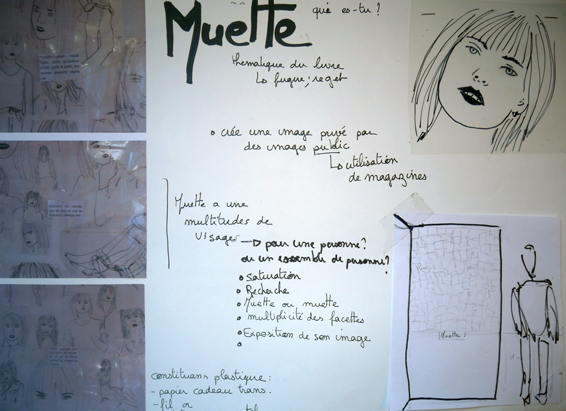 Muette
qui es-tu ?
thématique du livre
↳ fugue, rejet
• crée une image privé par
des images public
↳ utilisation
de magazines
Muette a une
multitudes de
visages → pour une personne?
ou un ensemble de personne?
• saturation
• Recherche
• Muette ou muette
• multiplicité des facettes
• Exposition de son image
•
constituants plastique :
- papier cadeau trans.
- fil or
Muette